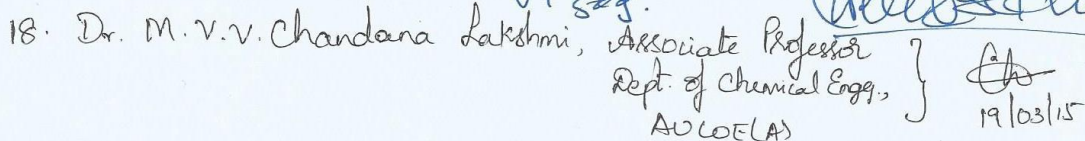 18. Dr. M.V.V. Chandana Lakshmi, Associate Professor
Dept. of Chemical Engg.,
AUCOE(A)
19/03/15